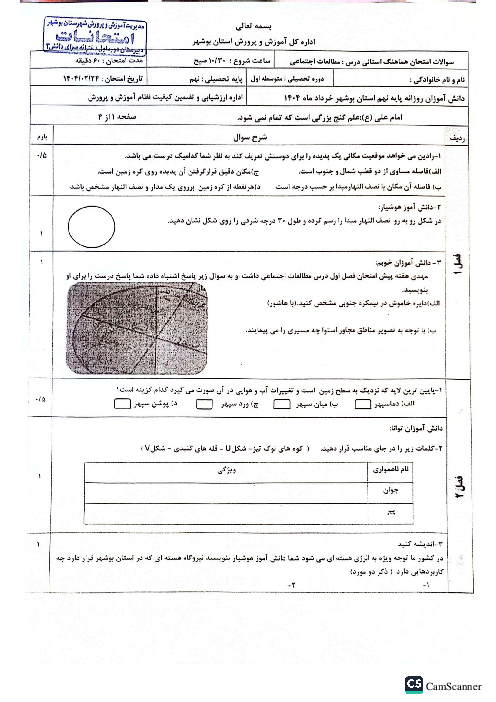 بسمه تعالی
اداره کل آموزش و پرورش استان بوشهر
مدیریت آموزش و پرورش شهرستان بوشهر
امتحانات
سوالات امتحان هماهنگ استانی درس : مطالعات اجتماعی
ساعت شروع : ۱۰/۳۰ صبح
مدت امتحان : ۶۰ دقیقه
نام و نام خانوادگی :
دوره تحصیلی : متوسطه اول
پایه تحصیلی : نهم
تاریخ امتحان : ۱۴۰۴/۰۳/۲۴
دانش آموزان روزانه پایه نهم استان بوشهر خرداد ماه ۱۴۰۴
اداره ارزشیابی و تضمین کیفیت نظام آموزش و پرورش
امام علی (ع):علم گنج بزرگی است که تمام نمی شود.
صفحه ۱ از ۴
ردیف
شرح سوال
بارم
فصل ۱
۱-رادین می خواهد موقعیت مکانی یک پدیده را برای دوستش تعریف کند به نظر شما کدامیک درست می باشد.
۰/۵
الف)فاصله مساوی از دو قطب شمال و جنوب است.
ج)مکان دقیق قرارگرفتن آن پدیده روی کره زمین است.
ب) فاصله آن مکان با نصف النهارمبدا بر حسب درجه است
د)هرنقطه از کره زمین برروی یک مدار و نصف النهار مشخص باشد
۲-دانش آموز هوشیار:
در شکل رو به رو نصف النهار مبدا را رسم کرده و طول ۳۰ درجه شرقی را روی شکل نشان دهید.
۱
۳- دانش آموزان خوبم:
۱
مهدی هفته پیش امتحان فصل اول درس مطالعات اجتماعی داشت او به سوال زیر پاسخ اشتباه داده شما پاسخ درست را برای او بنویسید.
الف)دایره خاموش در نیمکره جنوبی مشخص کنید.(با هاشور)
ب) با توجه به تصویر مناطق مجاور استوا چه مسیری را می پیمایند.
فصل ۲
۱-پایین ترین لایه که نزدیک به سطح زمین است و تغییرات آب و هوایی در آن صورت می گیرد کدام گزینه است؟
۰/۵
الف) دماسپهر
ب) میان سپهر
ج) ورد سپهر
د) پوشن سپهر
دانش آموزان توانا:
۲-کلمات زیر را در جای مناسب قرار دهید. ( کوه های نوک تیز- شکل U - قله های گنبدی - شکل V )
نام ناهمواری
ویژگی
جوان
پیر
۱
۳-اندیشه کنید
۱
در کشور ما توجه ویژه به انرژی هسته ای می شود شما دانش آموز هوشیار بنویسید نیروگاه هسته ای که در استان بوشهر قرار دارد چه کاربردهایی دارد ( ذکر دو مورد)
۱-
۲-
CS CamScanner